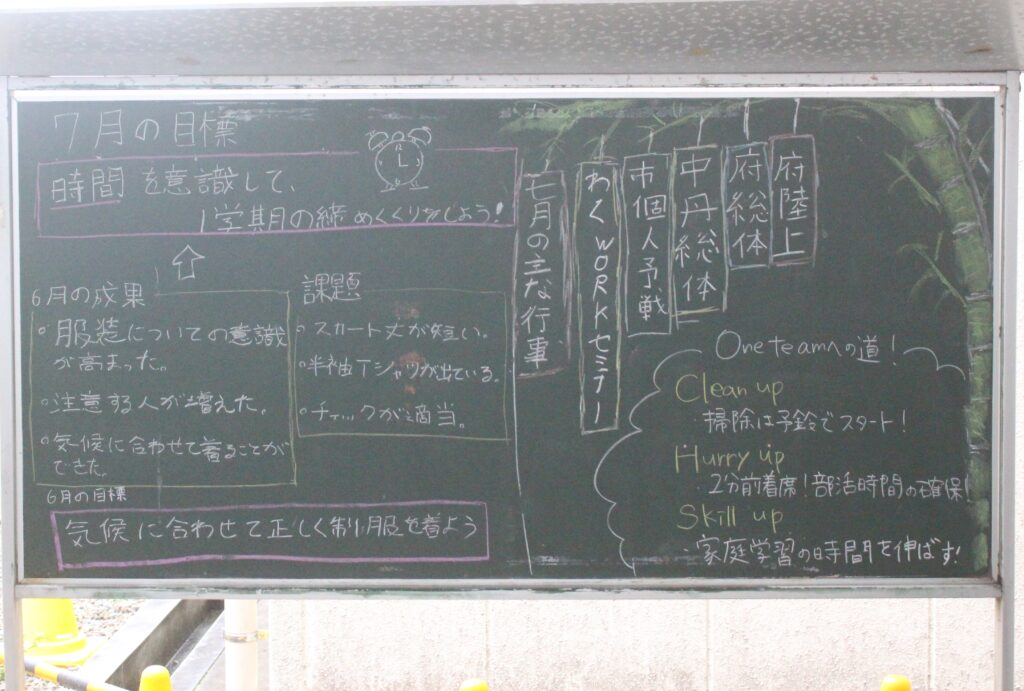 7月の目標
時間を意識して、
1学期の締めくくりをしよう!
6月の成果
○服装についての意識
が高まった。
○注意する人が増えた。
○気候に合わせて着ることが
できた。
課題
○スカート丈が短い。
○半袖Tシャツが出ている。
○チェックが適当。
6月の目標
気候に合わせて正しく制服を着よう
府陸上
府総体
中丹総体
市個人予戦
わくWORKセミナー
七月の主な行事
One teamへの道!
Clean up
・掃除は予鈴でスタート!
Hurry up
・2分前着席!部活時間の確保!
Skill up
・家庭学習の時間を伸ばす!